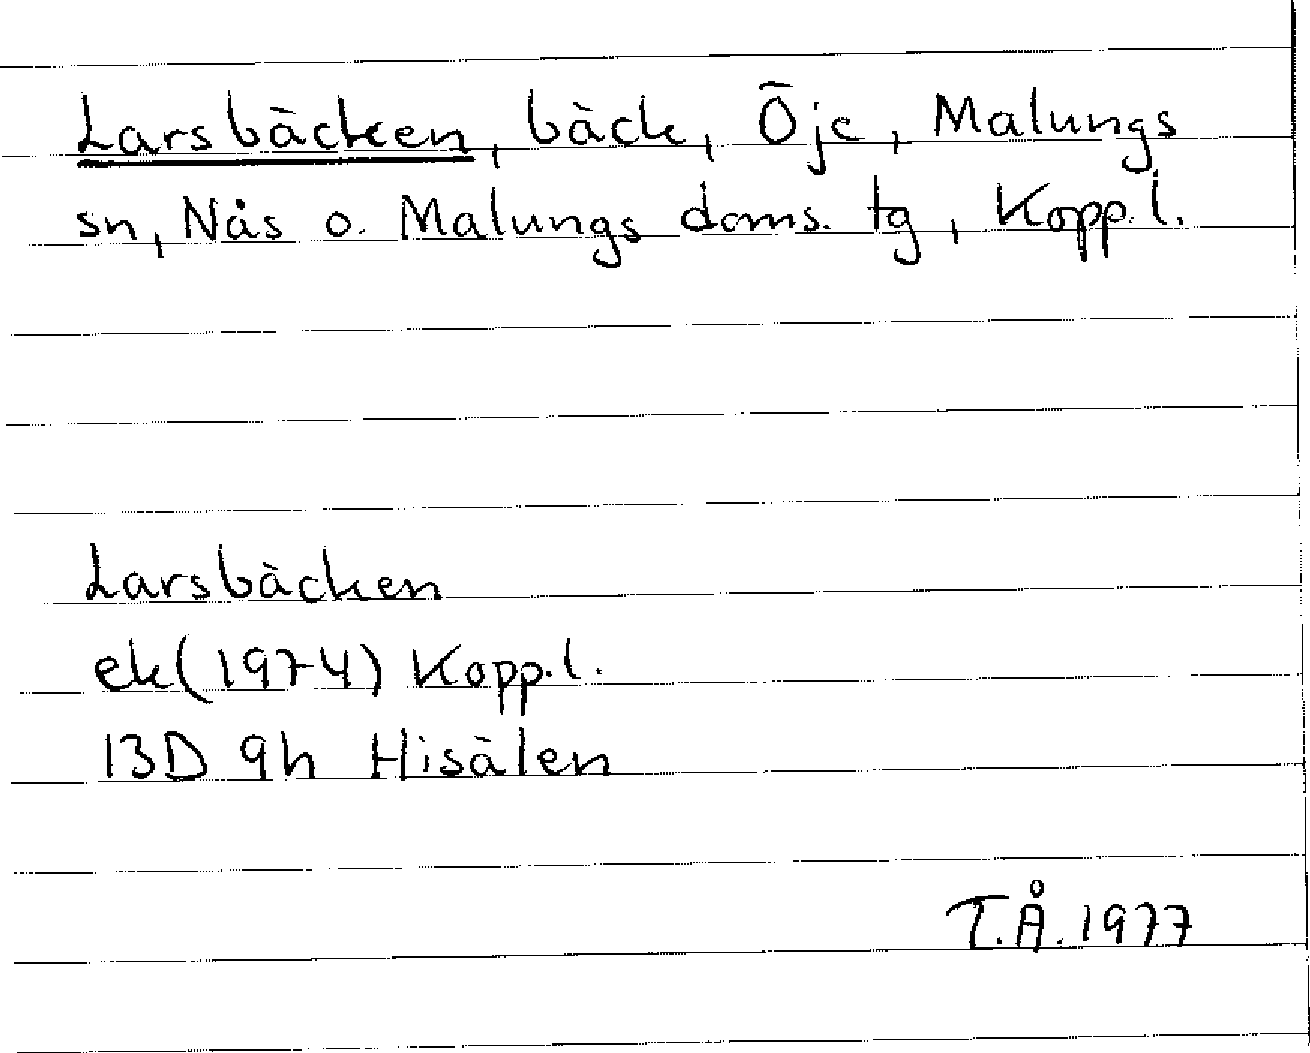 Larsbäcken, bäck, Öje, Malungs
sn, Nås o. Malungs doms. tg, Kopp.l.
Larsbäcken
ek(1974) Kopp.l.
13D 9h Hisälen
T.Å.1977